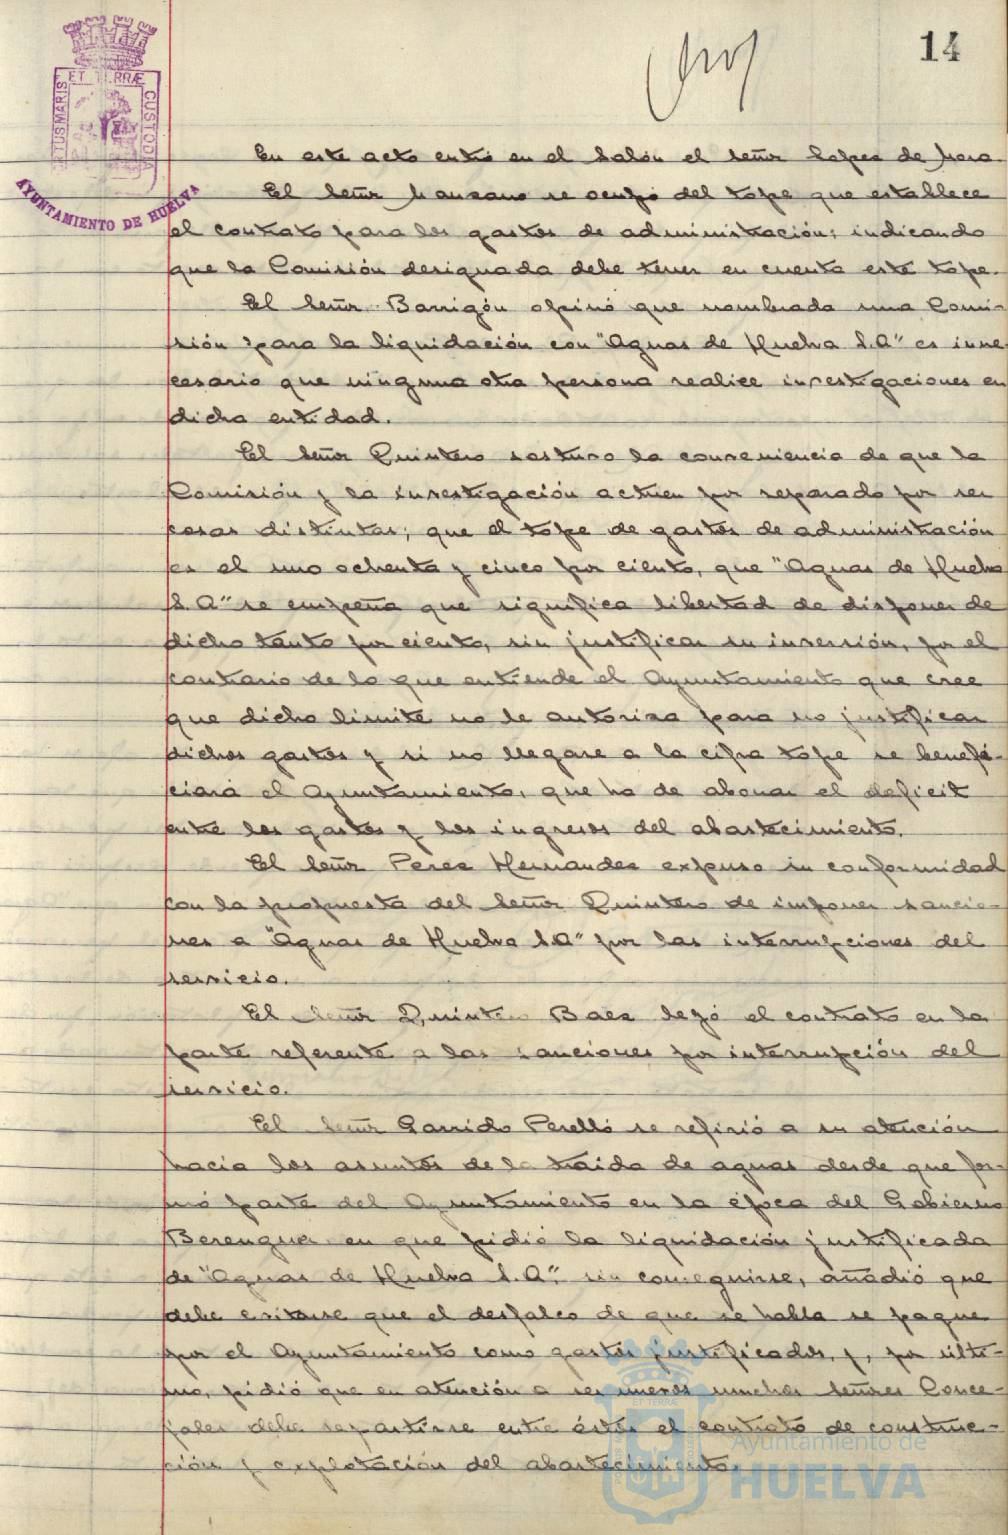 14
PORTUS MARIS ET TERRÆ CUSTODIA
AYUNTAMIENTO DE HUELVA
En este acto entró en el Salón el Señor Lopez de Mora.
El Señor Manzano se ocupó del tope que establece
el contrato para los gastos de administración; indicando
que la Comisión designada debe tener en cuenta este tope.
El Señor Barrigón opinó que nombrada una Comi-
sión para la liquidación con "Aguas de Huelva S.A" es inne-
cesario que ninguna otra persona realice investigaciones en
dicha entidad.
El Señor Quintero sostuvo la conveniencia de que la
Comisión y la investigación actuen por separado por ser
cosas distintas; que el tope de gastos de administración
es el uno ochenta y cinco por ciento, que "Aguas de Huelva
S.A" se empeña que significa libertad de disponer de
dicho tanto por ciento, sin justificar su inversión, por el
contrario de lo que entiende el Ayuntamiento que cree
que dicho limite no le autoriza para no justificar
dichos gastos y si no llegare a la cifra tope se benefi-
ciará el Ayuntamiento, que ha de abonar el deficit
entre los gastos y los ingresos del abastecimiento.
El Señor Perez Hernandez expuso su conformidad
con la propuesta del Señor Quintero de imponer sancio-
nes a "Aguas de Huelva S.A" por las interrupciones del
servicio.
El Señor Quintero Baez leyó el contrato en la
parte referente a las sanciones por interrupción del
servicio.
El Señor Garrido Perelló se refirió a su atención
hacia los asuntos de la traida de aguas desde que for-
mó parte del Ayuntamiento en la época del Gobierno
Berenguer en que pidió la liquidación justificada
de "Aguas de Huelva S.A", sin conseguirse, añadió que
debe evitarse que el desfalco de que se habla se pague
por el Ayuntamiento como gastos justificados, y, por ulti-
mo, pidió que en atención a ser nuevos muchos Señores Conce-
jales debe repartirse entre éstos el contrato de construc-
ción y explotación del abastecimiento.
Ayuntamiento de
HUELVA